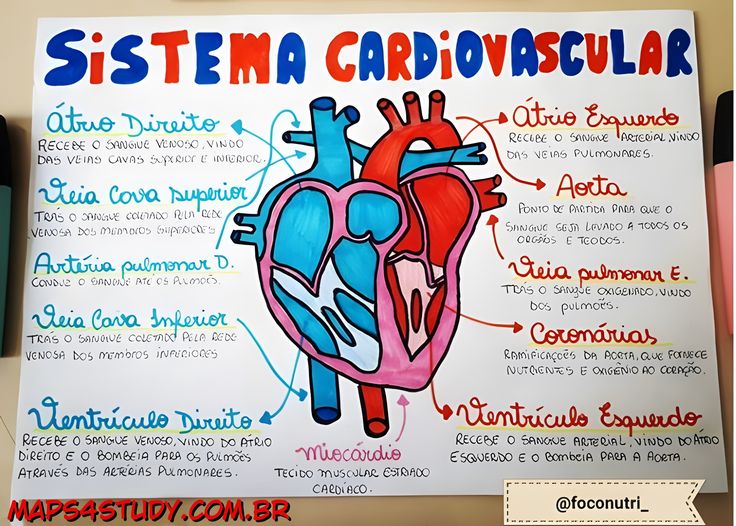 SISTEMA CARDIOVASCULAR
Átrio Direito
RECEBE O SANGUE VENOSO, VINDO
DAS VEIAS CAVAS SUPERIOR E INFERIOR.
Veia Cava Superior
TRÁS O SANGUE COLETADO PELA REDE
VENOSA DOS MEMBROS SUPERIORES
Artéria pulmonar D.
CONDUZ O SANGUE ATÉ OS PULMÕES.
Veia Cava Inferior
TRÁS O SANGUE COLETADO PELA REDE
VENOSA DOS MEMBROS INFERIORES
Ventrículo Direito
RECEBE O SANGUE VENOSO, VINDO DO ÁTRIO
DIREITO E O BOMBEIA PARA OS PULMÕES
ATRAVÉS DAS ARTÉRIAS PULMONARES.
Miocárdio
TECIDO MUSCULAR ESTRIADO
CARDÍACO.
Átrio Esquerdo
RECEBE O SANGUE ARTERIAL, VINDO
DAS VEIAS PULMONARES.
Aorta
PONTO DE PARTIDA PARA QUE O
SANGUE SEJA LAVADO A TODOS OS
ORGÃOS E TECIDOS.
Veia pulmonar E.
TRÁS O SANGUE OXIGENADO, VINDO
DOS PULMÕES.
Coronárias
RAMIFICAÇÕES DA AORTA, QUE FORNECE
NUTRIENTES E OXIGÊNIO AO CORAÇÃO.
Ventrículo Esquerdo
RECEBE O SANGUE ARTERIAL, VINDO DO ÁTRIO
ESQUERDO E O BOMBEIA PARA A AORTA.
MAPS4STUDY.COM.BR
@foconutri_